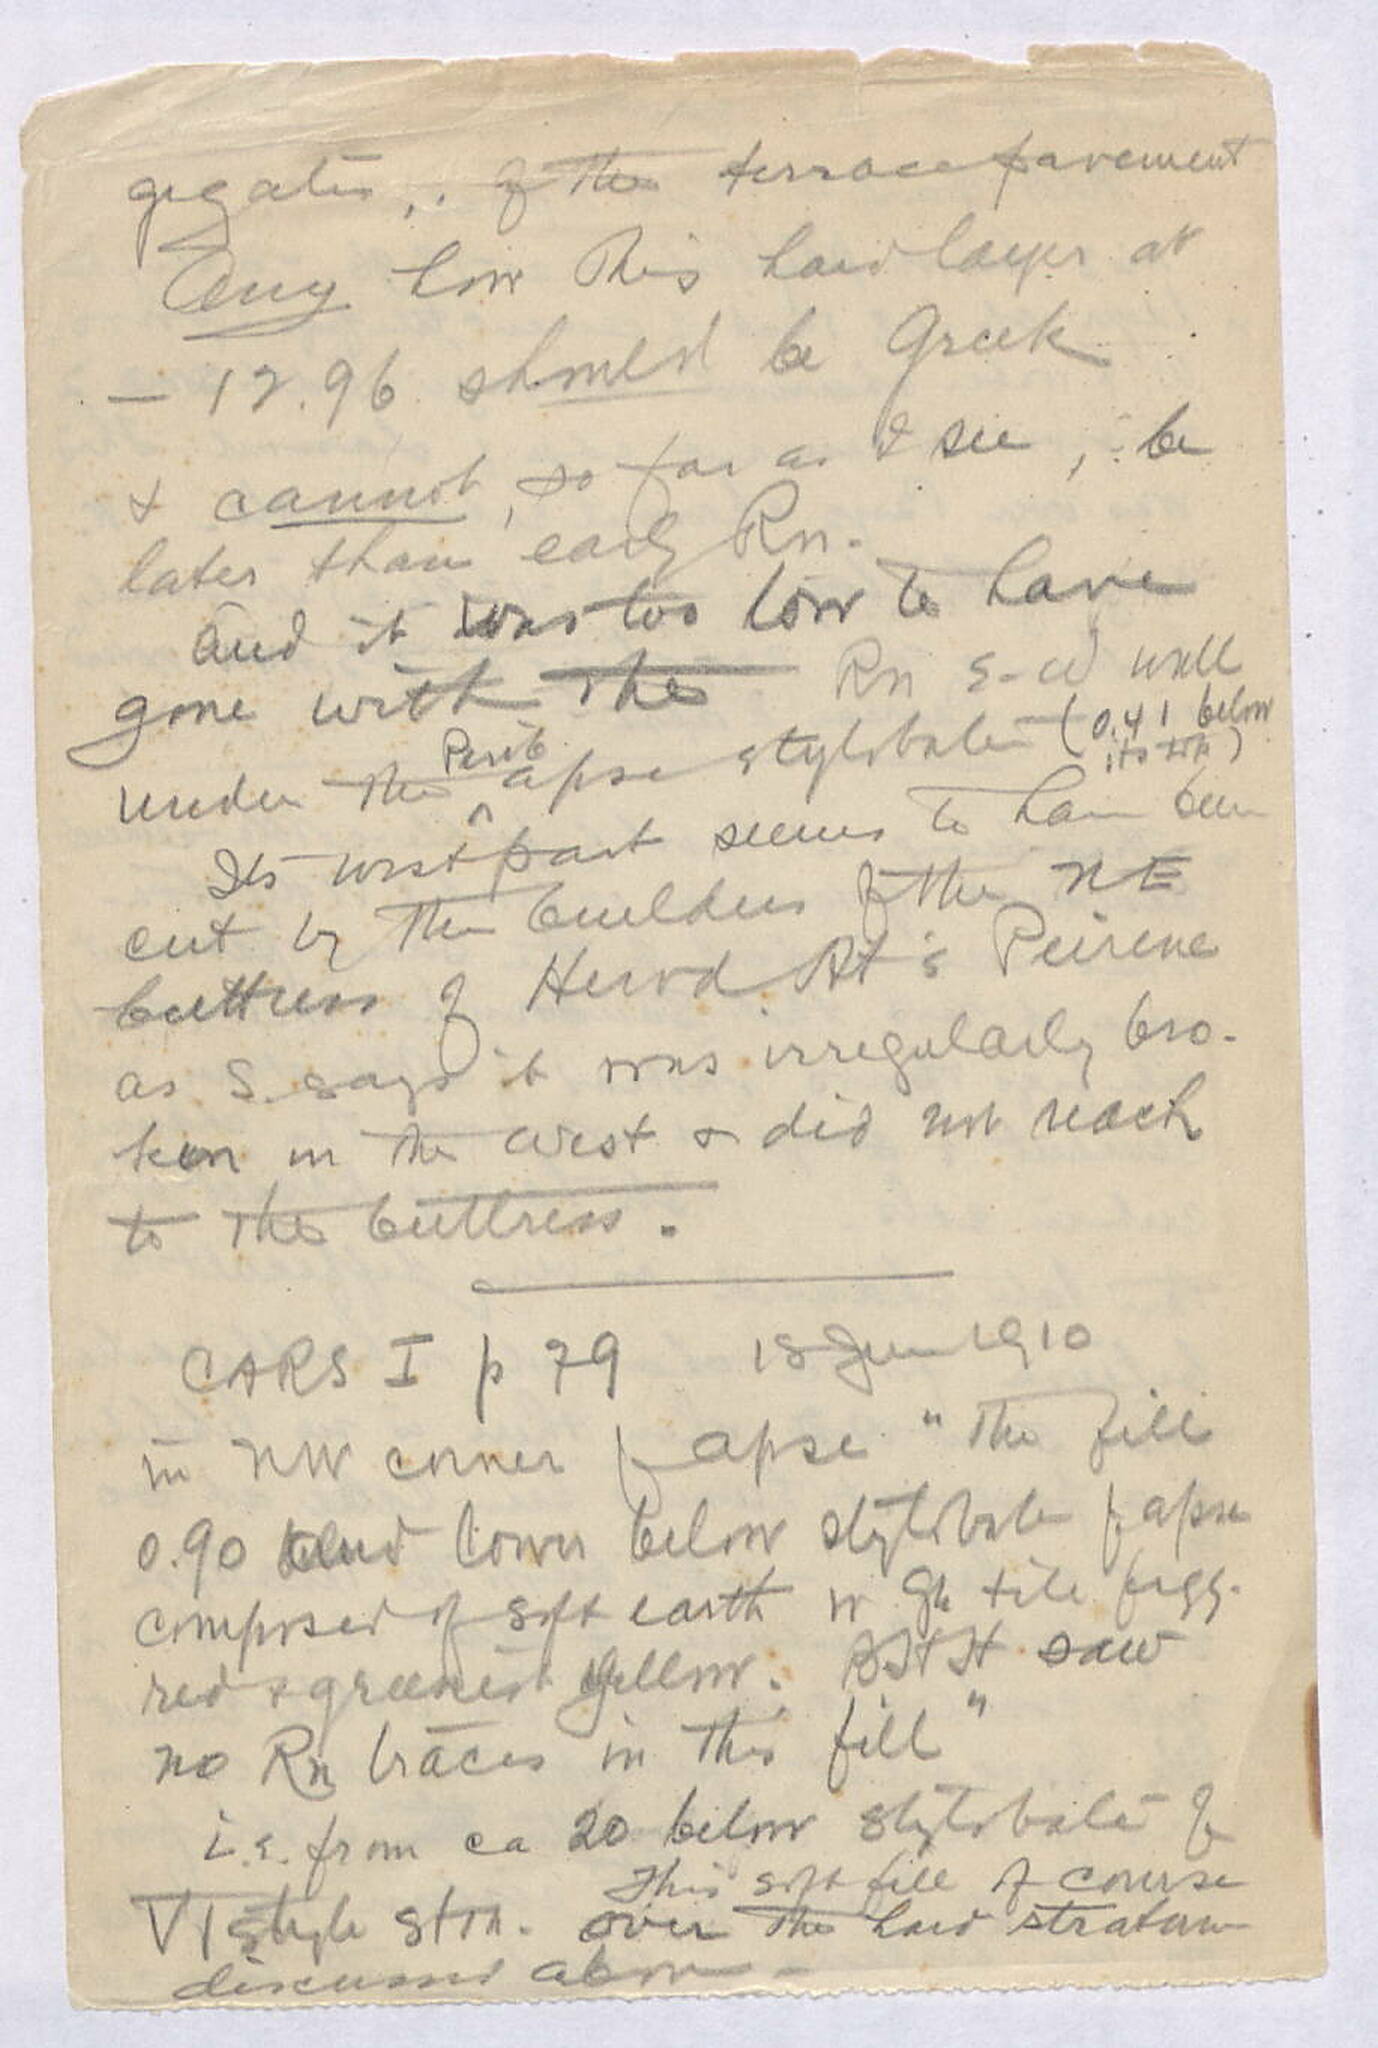 gregatis, . of the terrace pavement
Any how this hard layer at
— 12.96 should be Greek
& cannot, so far as I see, be
later than early Rn.
And it was too low to have
gone with the Rn S-W wall
under the Perib apse stylobate (0.41 below its btm)
Its west part seems to have been
cut by the builders of the NE
buttress of Herod At's Peirene
as S. says it was irregularly bro-
ken in the west & did not reach
to the buttress.
CARS I p 79 18 Jun 1910
in NW corner of apse "The fill
0.90 and lower below stylobate of apse
composed of soft earth w Gk tile fragg.
red & greenish yellow. BHH saw
no Rn traces in this fill"
i.e. from ca 20 below stylobate of
VI style stoa. This soft fill of course
over the hard stratum
discussed above -